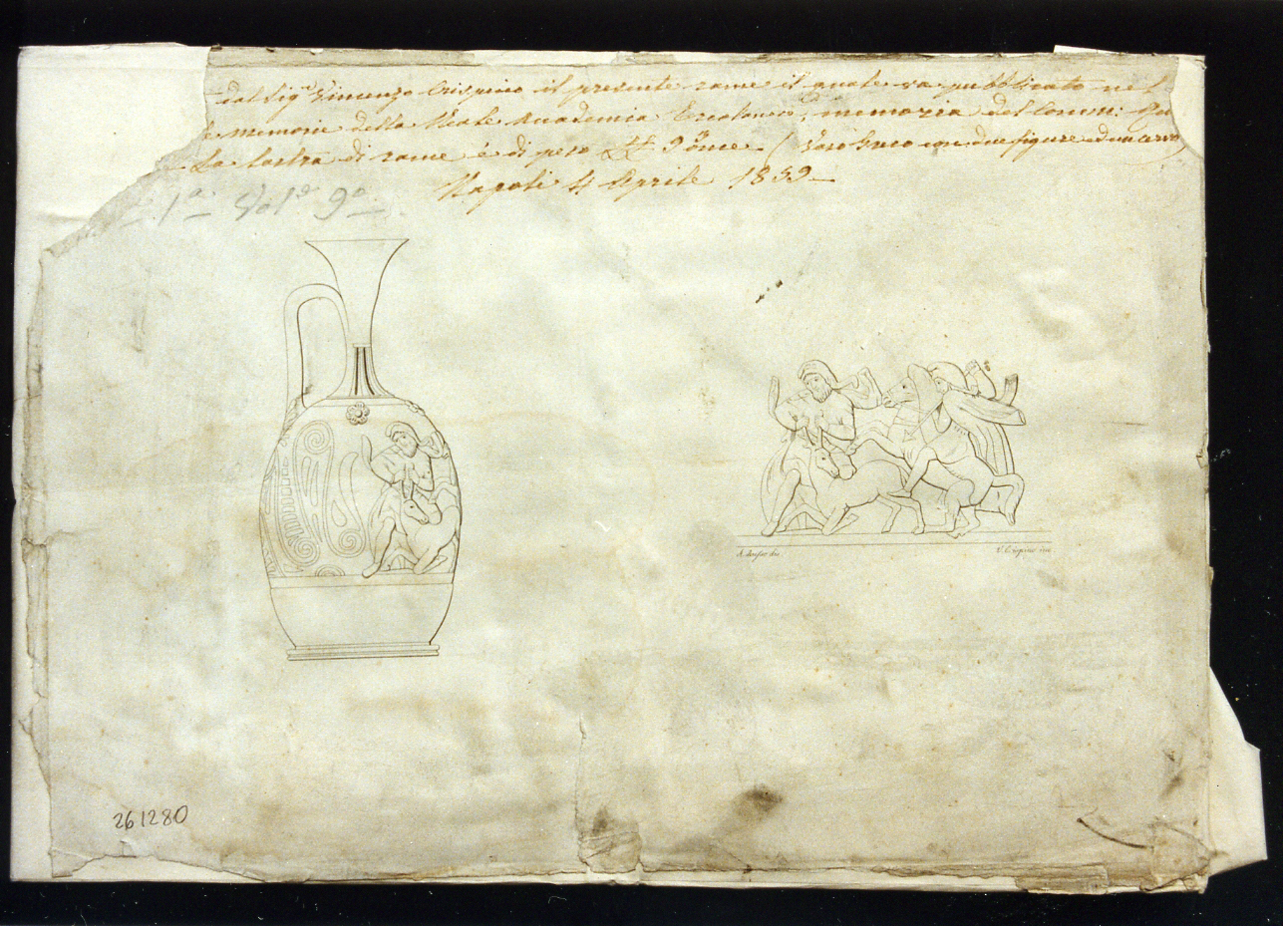 dal Sig.r Vincenzo Crispino il presente rame il quale va pubblicato nel
le memorie della Reale Accademia Ercolanese, memoria del Comm:
La lastra di rame è di peso 9 once (Vaso Greco con due figure ed un cervo)
Napoli 4 Aprile 1859
1a Vol.e 9o
V. Crispino inc.
261280